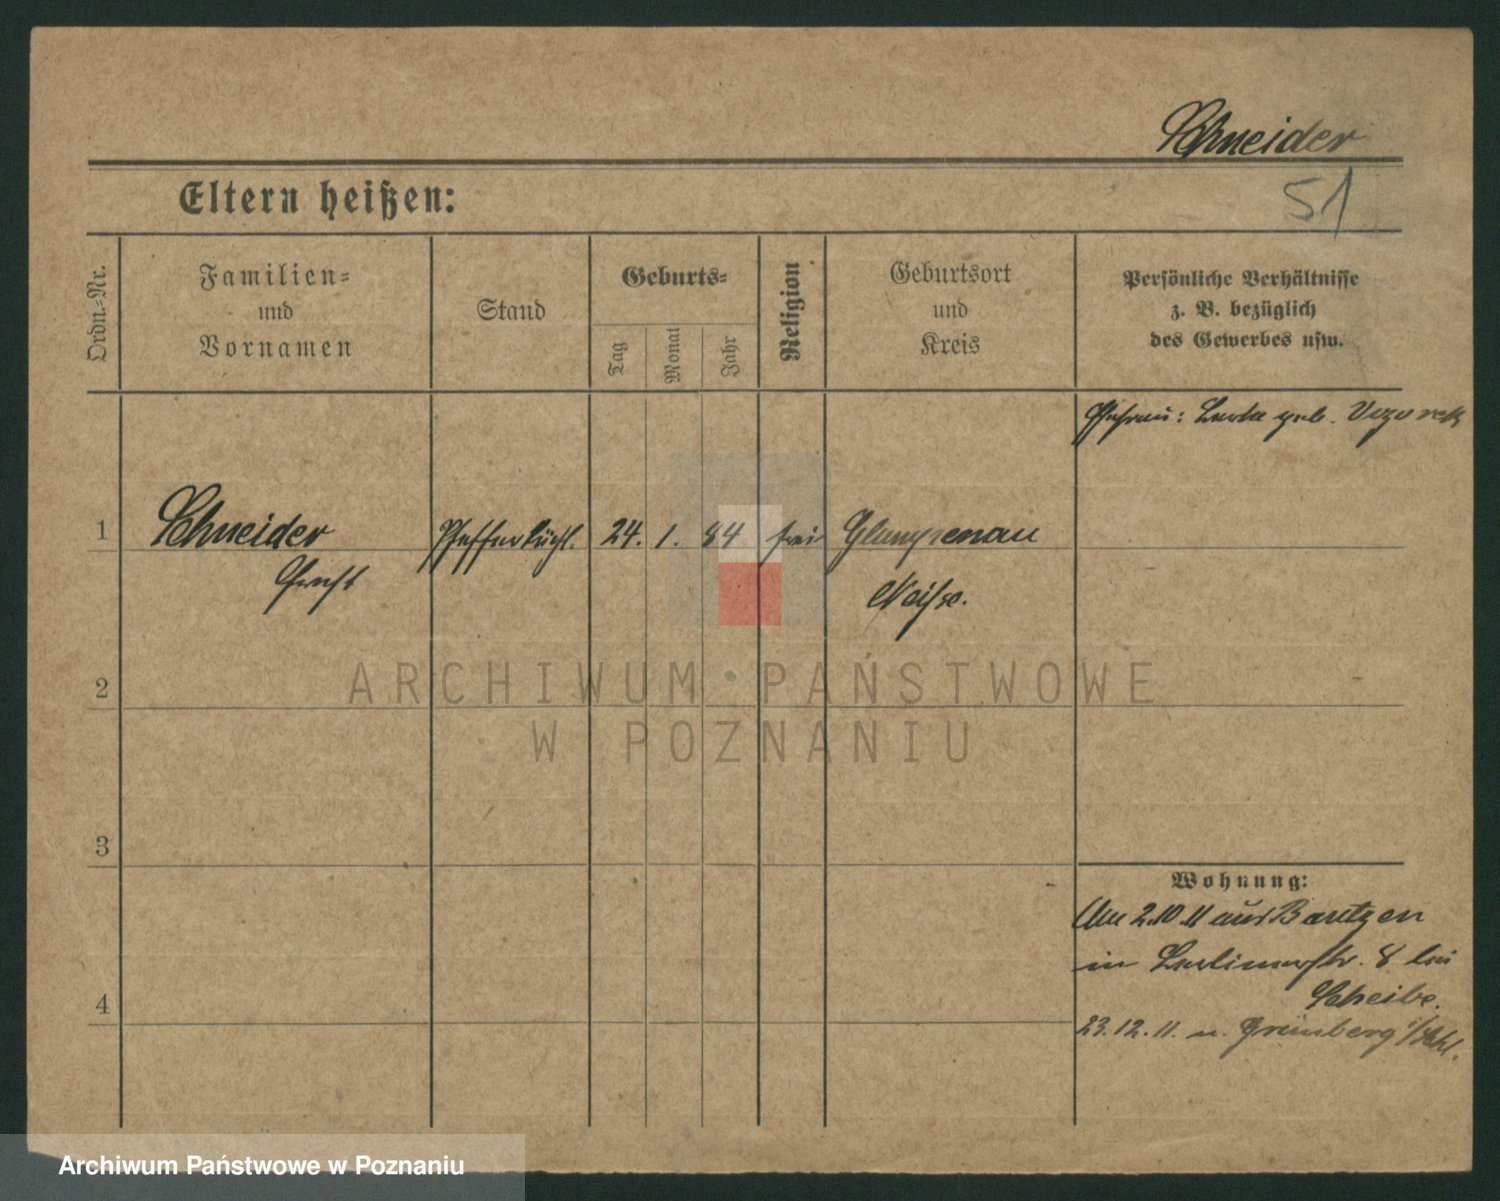 Schneider
Eltern heißen:
51
Ordn.-Nr.
Familien-
und
Vornamen
Stand
Geburts-
Tag
Monat
Jahr
Religion
Geburtsort
und
Kreis
Persönliche Verhältnisse
z. B. bezüglich
des Gewerbes usw.
Ehefrau: geb.
1
Schneider
Pfefferküchl. 24. 1. 84 frei
Neisse.
2
ARCHIWUM PAŃSTWOWE
W POZNANIU
3
Wohnung:
Am 2.10 11 aus Bautzen
in Berlinerstr. 8 bei
Scheibe.
4
23.12.11. n. Grünberg i/Schl.
Archiwum Państwowe w Poznaniu